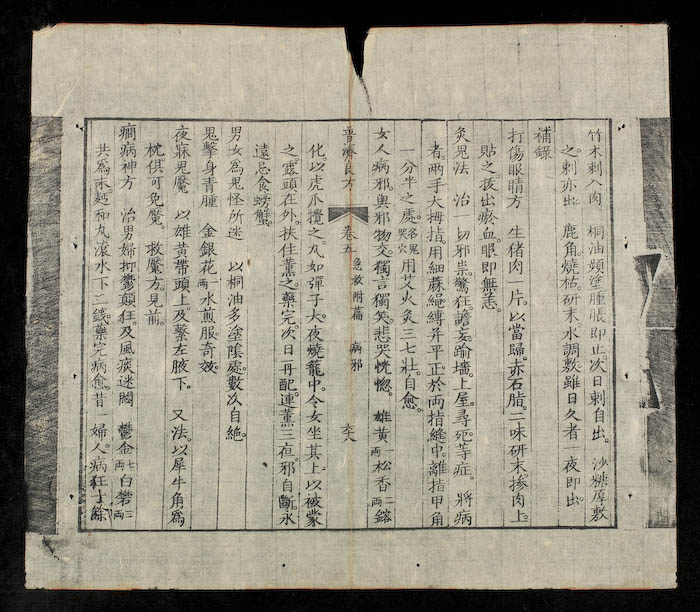 竹木刺入肉　桐油頻塗腫脹即止次日刺自出。沙糖厚敷
之。刺亦出。鹿角。燒枯。研末。水調敷。雖日久者一夜即出。
補錄
打傷眼睛方　生猪肉一片。以當歸。赤石脂。二味研末。摻肉上。
貼之。拔出瘀血。眼即無恙。
灸鬼法　治一切邪祟。驚狂。譫妄。踰墻。上屋。尋死等症。將病
者。兩手大拇指。用細蔴繩縛并平正於兩指縫中。離指甲角
一分半之處。名鬼哭穴。用艾火灸三七壯。自愈。
女人病邪。與邪物交。獨言獨笑。悲哭恍惚。雄黃一兩松香二兩鎔
普濟良方　卷五　急救附篇　病邪　六八
化。以虎爪攪之。丸如彈子大。夜燒籠中。令女坐其上。以被蒙
之。露頭在外。扶住薰之。藥完。次日再配。連薰三夜。邪自斷。永
遠忌食螃蟹。
男女為鬼怪所迷　以桐油多塗陰處。數次自絶。
鬼擊身青腫　金銀花一兩水煎服奇效。
夜寐鬼魘　以雄黃帶頭上。及繫左腋下。又法。以犀牛角為
枕俱可免魘。救魘方。見前。
癎病神方　治男婦抑鬱顛狂。及風痰迷悶　鬱金七兩白礬三兩
共為末。麪和丸。滾水下二錢。藥完病愈。昔一婦人。病狂十餘